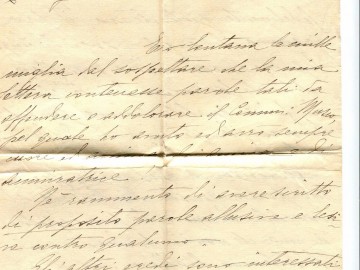 Ero lontana le mille
miglia dal sospettare che la mia
lettera contenesse parole tali da
offendere e addolorare il Comm. Russo,
pel quale ho avuto ed avrò sempre
cuore ed di
ammiratrice.
Nè rammento di avere scritto
di proposito parole allusive e lesi-
ve contro qualcuno.
Gli altri eredi sono interessati